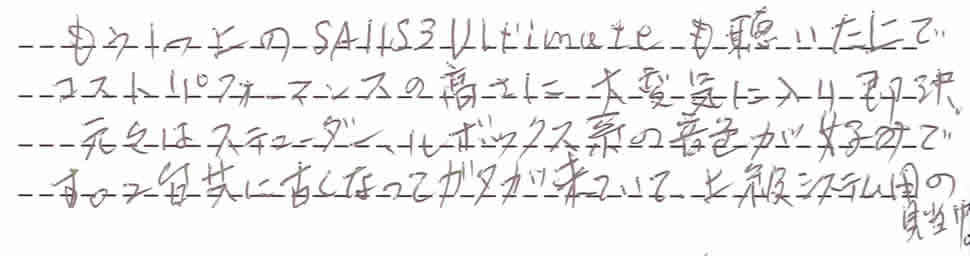 もう1つ上の SA11S3 Ultimate も聴いた上で
コストパフォーマンスの高さに 大変気に入り 即決
元々はステューダー、ルボックス系の音色が好みで
共に古くなってガタが来ていて 上級システム用の
見当中。